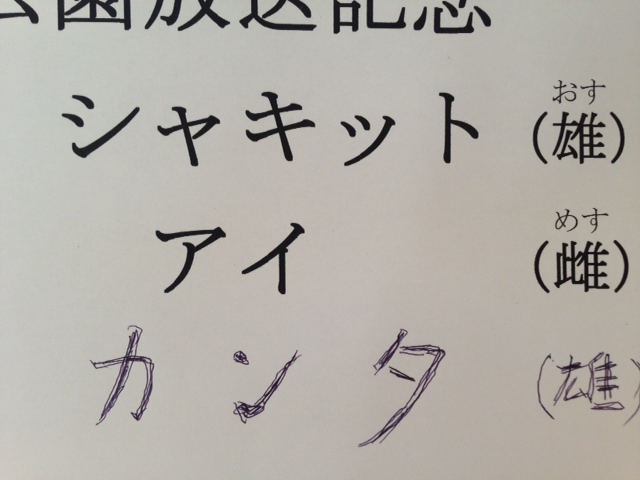 公園放送記念
おす
シャキット (雄)
めす
アイ (雌)
カンタ (雄)